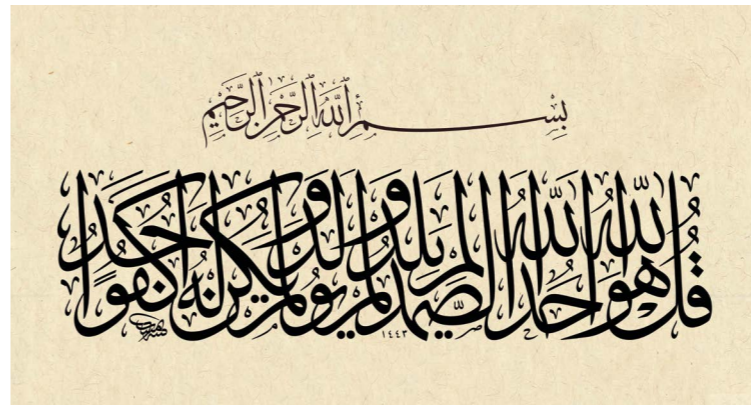 بِسْمِ ٱللَّهِ ٱلرَّحْمَٰنِ ٱلرَّحِيمِ
قُلْ هُوَ اللَّهُ أَحَدٌ اللَّهُ الصَّمَدُ لَمْ يَلِدْ وَلَمْ يُولَدْ وَلَمْ يَكُنْ لَهُ كُفُوًا أَحَدٌ
١٤٤٣